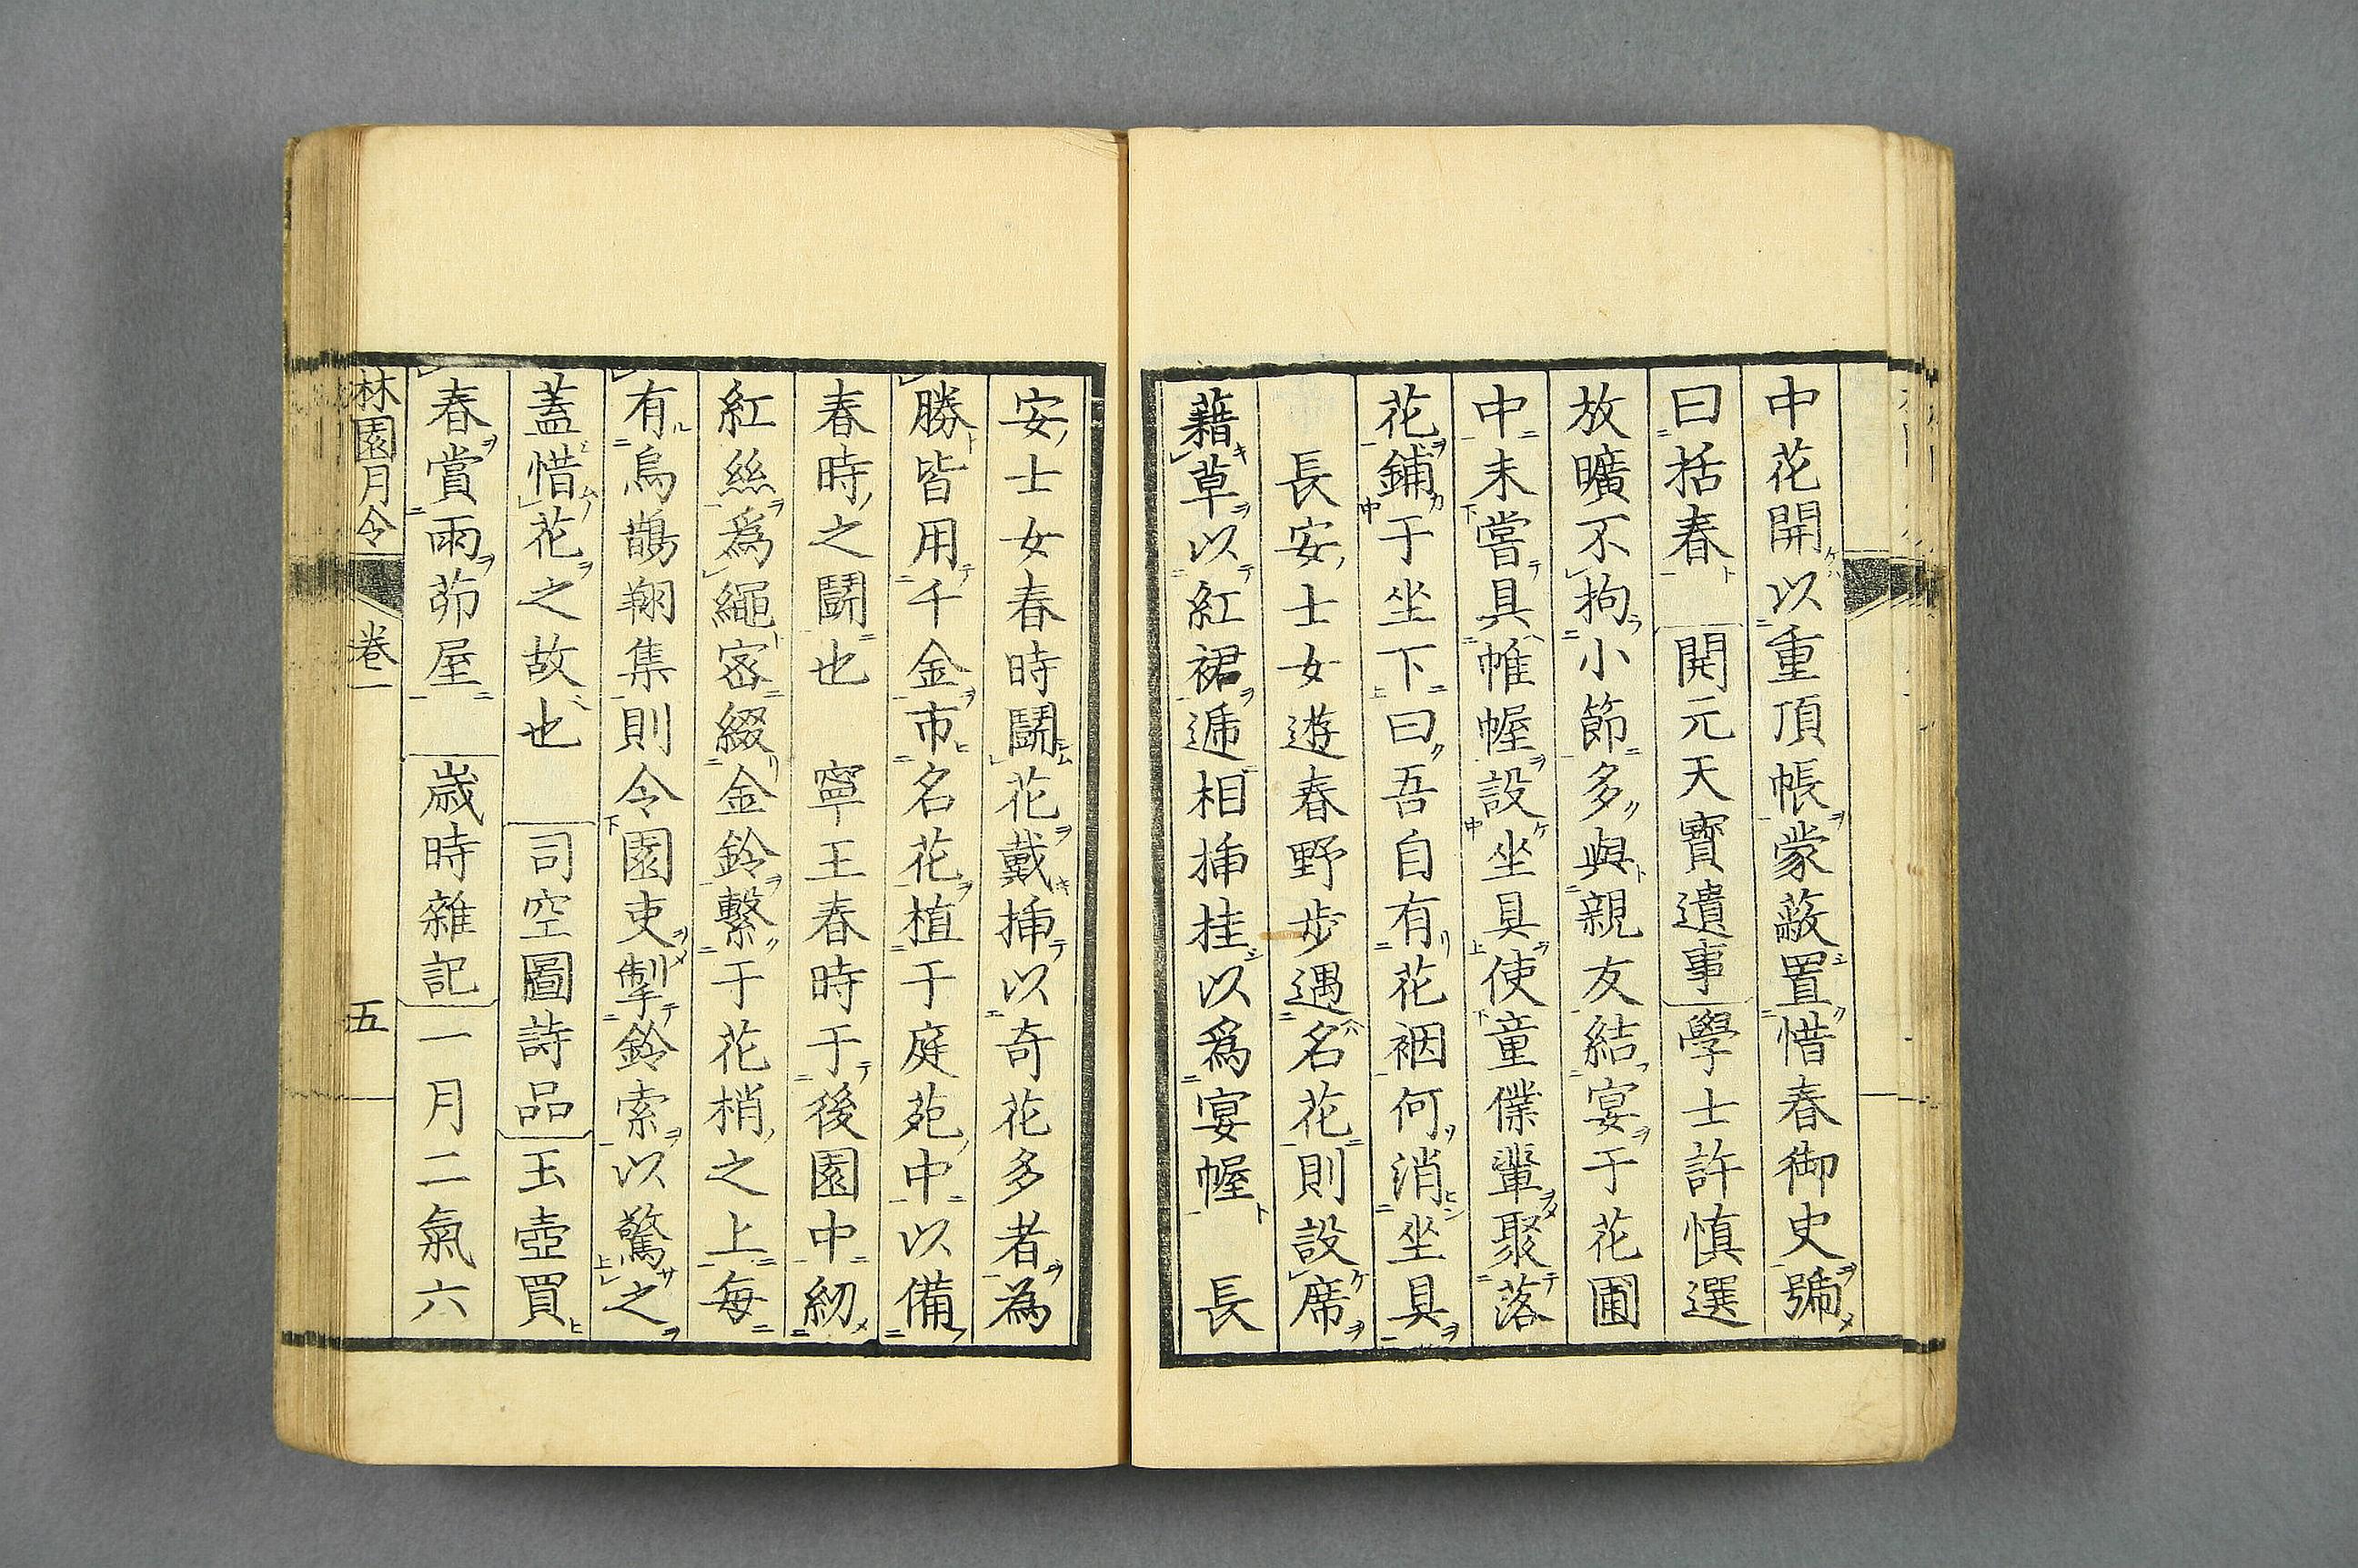 中花開以重頂帳蒙蔽置惜春御史號
曰括春　開元天寶遺事學士許慎選
放曠不拘小節多與親友結宴于花圃
中未嘗具帷幄設坐具使童僕輩聚落
花鋪于坐下曰吾自有花裀何消坐具
長安士女遊春野步遇名花則設席
藉草以紅裙遞相揷挂以為宴幄　長
安士女春時鬭花戴揷以奇花多者為
勝皆用千金市名花植于庭苑中以備
春時之鬭也　寧王春時于後園中紉
紅絲為繩密綴金鈴繫于花梢之上每
有鳥鵲翔集則令園吏掣鈴索以驚之
蓋惜花之故也　司空圖詩品玉壺買
春賞雨茆屋　歲時雜記一月二氣六
林園月令　卷一　五